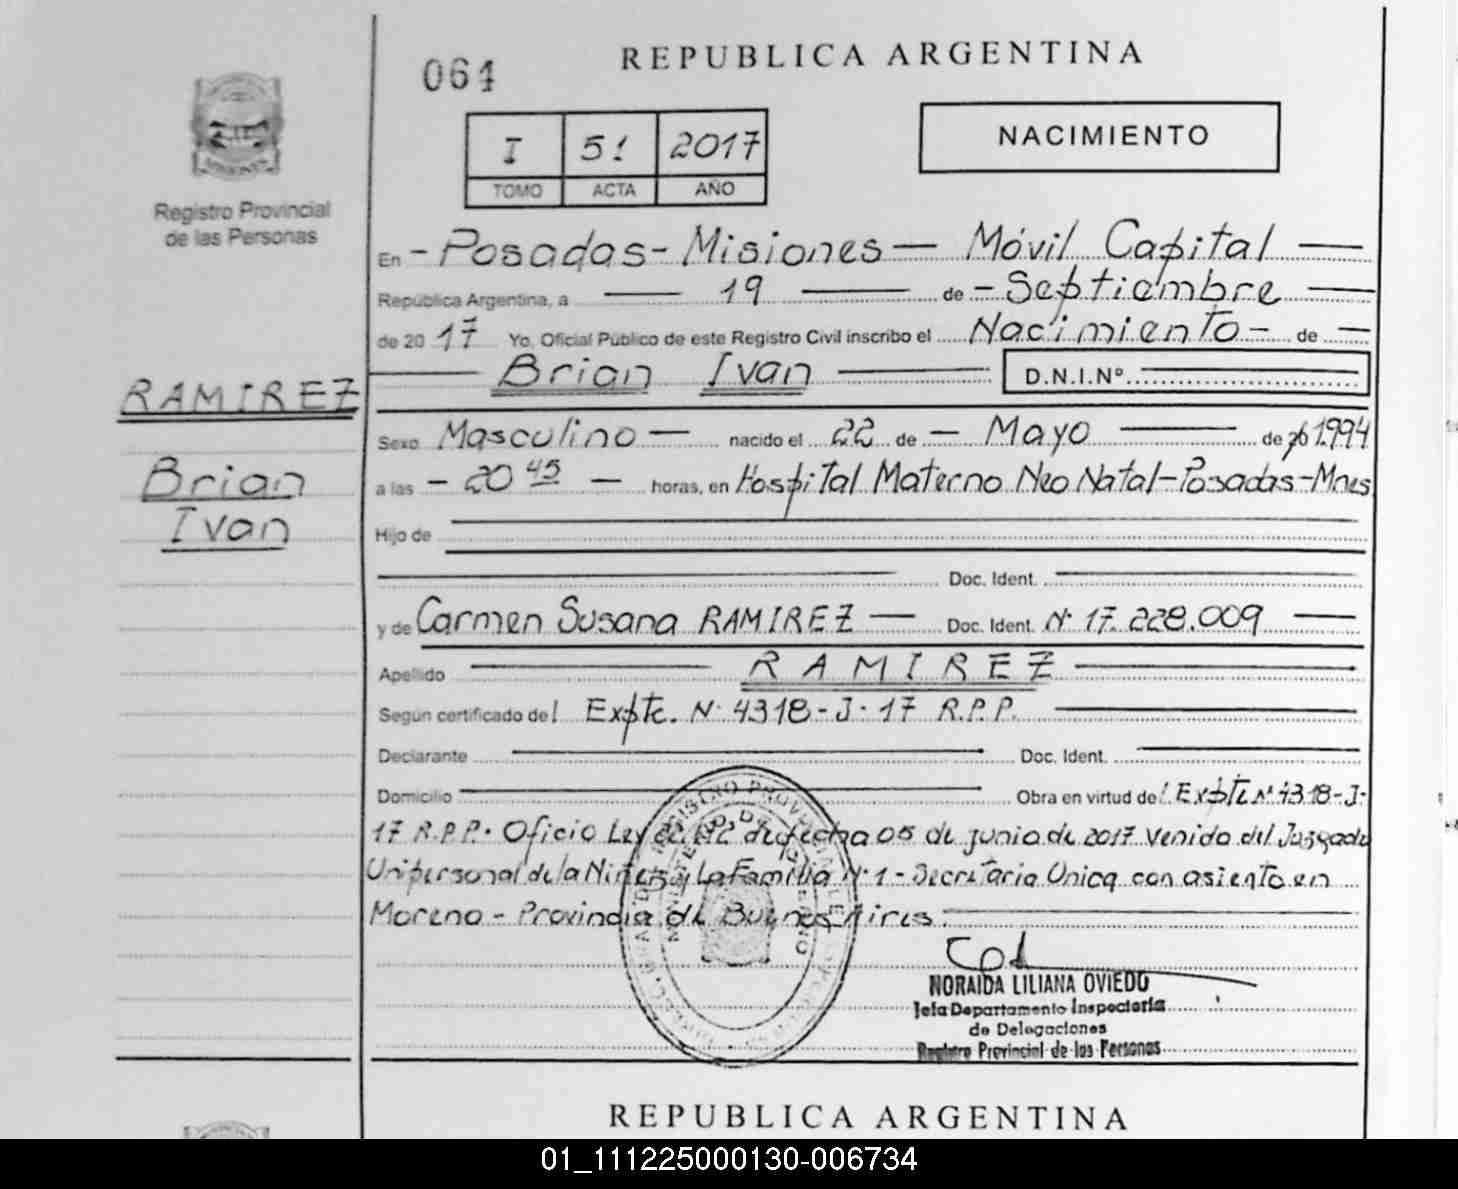 064
REPUBLICA ARGENTINA
I 51 2017
TOMO ACTA AÑO
NACIMIENTO
Registro Provincial
de las Personas
En - Posadas - Misiones — Móvil Capital —
República Argentina, a — 19 — de - Septiembre —
de 20 17 Yo, Oficial Público de este Registro Civil inscribo el Nacimiento - de —
— Brian Ivan — D.N.I.Nº
RAMIREZ
Brian
Ivan
Sexo Masculino — nacido el 22 de — Mayo — de 1994
a las - 20 45 — horas, en Hospital Materno Neo Natal - Posadas - Mnes
Hijo de
Doc. Ident.
y de Carmen Susana RAMIREZ — Doc. Ident. Nº 17.228.009 —
Apellido — RAMIREZ —
Según certificado del Expte. Nº 4318-J-17 R.P.P. —
Declarante — Doc. Ident. —
Domicilio — Obra en virtud del Expte Nº 4318-J-
17 R.P.P. Oficio Ley 22.172 de fecha 05 de junio de 2017 venido del Juzgado
Unipersonal de la Niñez y La Familia Nº 1 - Secretaria Unica con asiento en
Moreno - Provincia de Buenos Aires.
NORAIDA LILIANA OVIEDO
Jefa Departamento Inspectoria
de Delegaciones
Registro Provincial de las Personas
REPUBLICA ARGENTINA
01_111225000130-006734